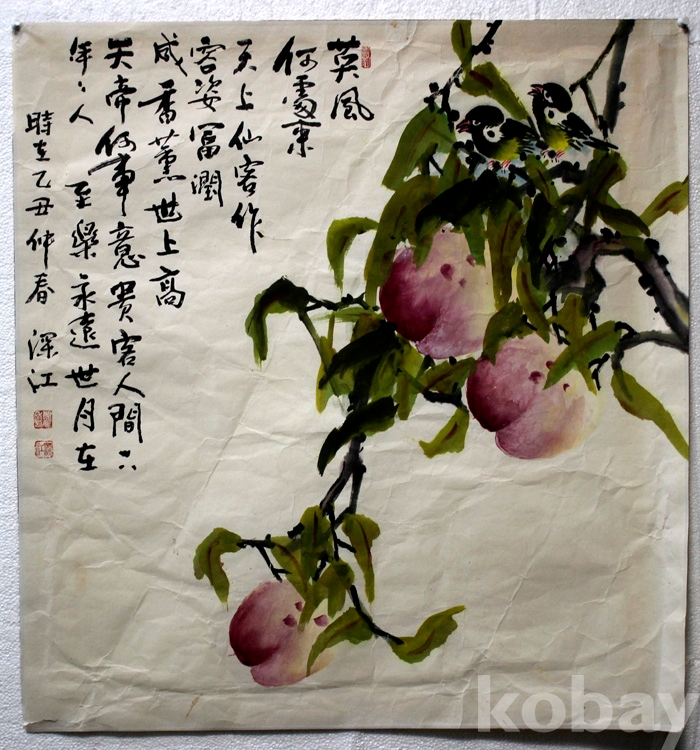 英風
何處來
天上仙客作
容姿冨潤
咸香薰世上高
天帝何事意貴客人間六
年々人至樂永遠世月在
時在乙丑仲春 深江
kobay